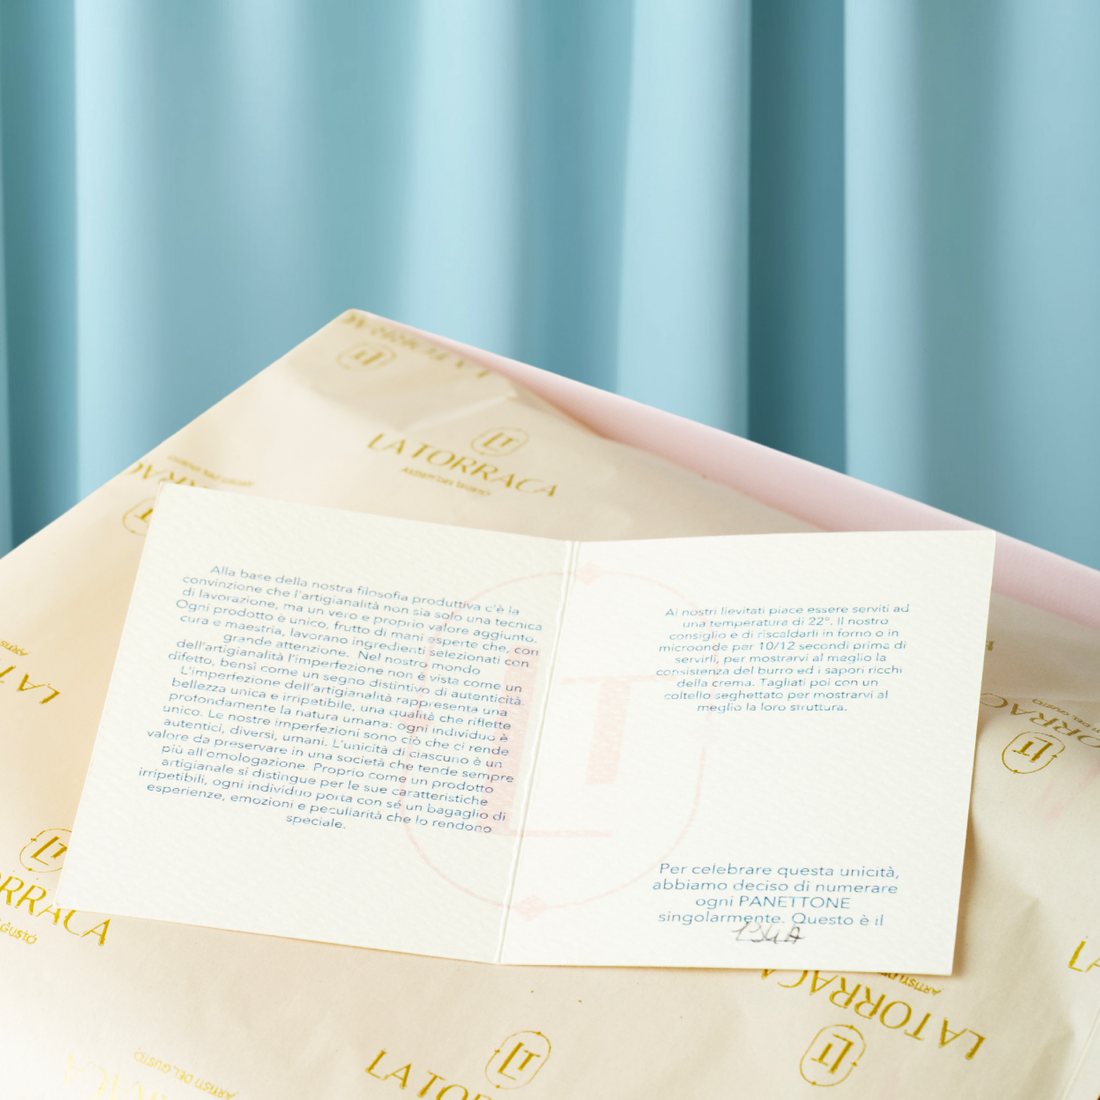 LT
LA TORRACA
ARTISTI DEL GUSTO
Alla base della nostra filosofia produttiva c'è la
convinzione che l'artigianalità non sia solo una tecnica
di lavorazione, ma un vero e proprio valore aggiunto.
Ogni prodotto è unico, frutto di mani esperte che, con
cura e maestria, lavorano ingredienti selezionati con
grande attenzione. Nel nostro mondo
dell'artigianalità l'imperfezione non è vista come un
difetto, bensì come un segno distintivo di autenticità.
L'imperfezione dell'artigianalità rappresenta una
bellezza unica e irripetibile, una qualità che riflette
profondamente la natura umana: ogni individuo è
unico. Le nostre imperfezioni sono ciò che ci rende
autentici, diversi, umani. L'unicità di ciascuno è un
valore da preservare in una società che tende sempre
più all'omologazione. Proprio come un prodotto
artigianale si distingue per le sue caratteristiche
irripetibili, ogni individuo porta con sé un bagaglio di
esperienze, emozioni e peculiarità che lo rendono
speciale.
Ai nostri lievitati piace essere serviti ad
una temperatura di 22°. Il nostro
consiglio è di riscaldarli in forno o in
microonde per 10/12 secondi prima di
servirli, per mostrarvi al meglio la
consistenza del burro ed i sapori ricchi
della crema. Tagliati poi con un
coltello seghettato per mostrarvi al
meglio la loro struttura.
Per celebrare questa unicità,
abbiamo deciso di numerare
ogni PANETTONE
singolarmente. Questo è il
LA TORRACA
ARTISTI DEL GUSTO
LT
LT
LA TO
ARTISTI DEL GUSTO